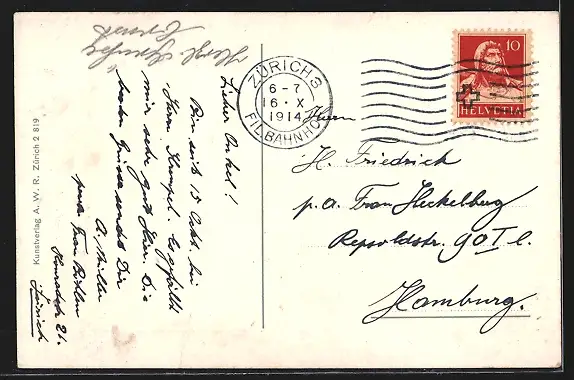 Lieber Onkel!
Bin seit 15 Okt. bei
Herrn Krempel. Es gefällt
mir sehr gut hier. Die
besten Grüsse sendet Dir
A. Müller
Zürich
Herrn
H. Friedrich
p.a. Frau Heckelberg
Repsoldstr. 90 I l.
Hamburg.
ZÜRICH 3
6-7
16 · X
1914
FIL. BAHNHOF
10
HELVETIA
Kunstverlag A. W. R. Zürich 2 819